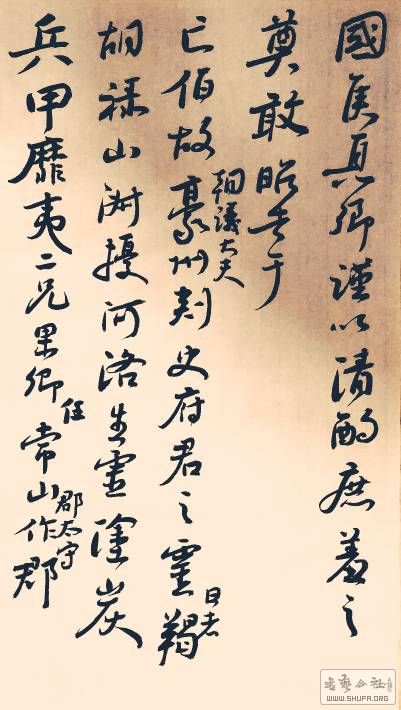 國侯真卿謹以清酌庶羞之
奠敢昭告于
亡伯故朝議大夫豪州刺史府君之靈日者羯
胡祿山擾河洛生靈塗炭
兵甲靡夷二兄杲卿任常山郡太守作郡
书艺公社
WWW.SHUFA.ORG